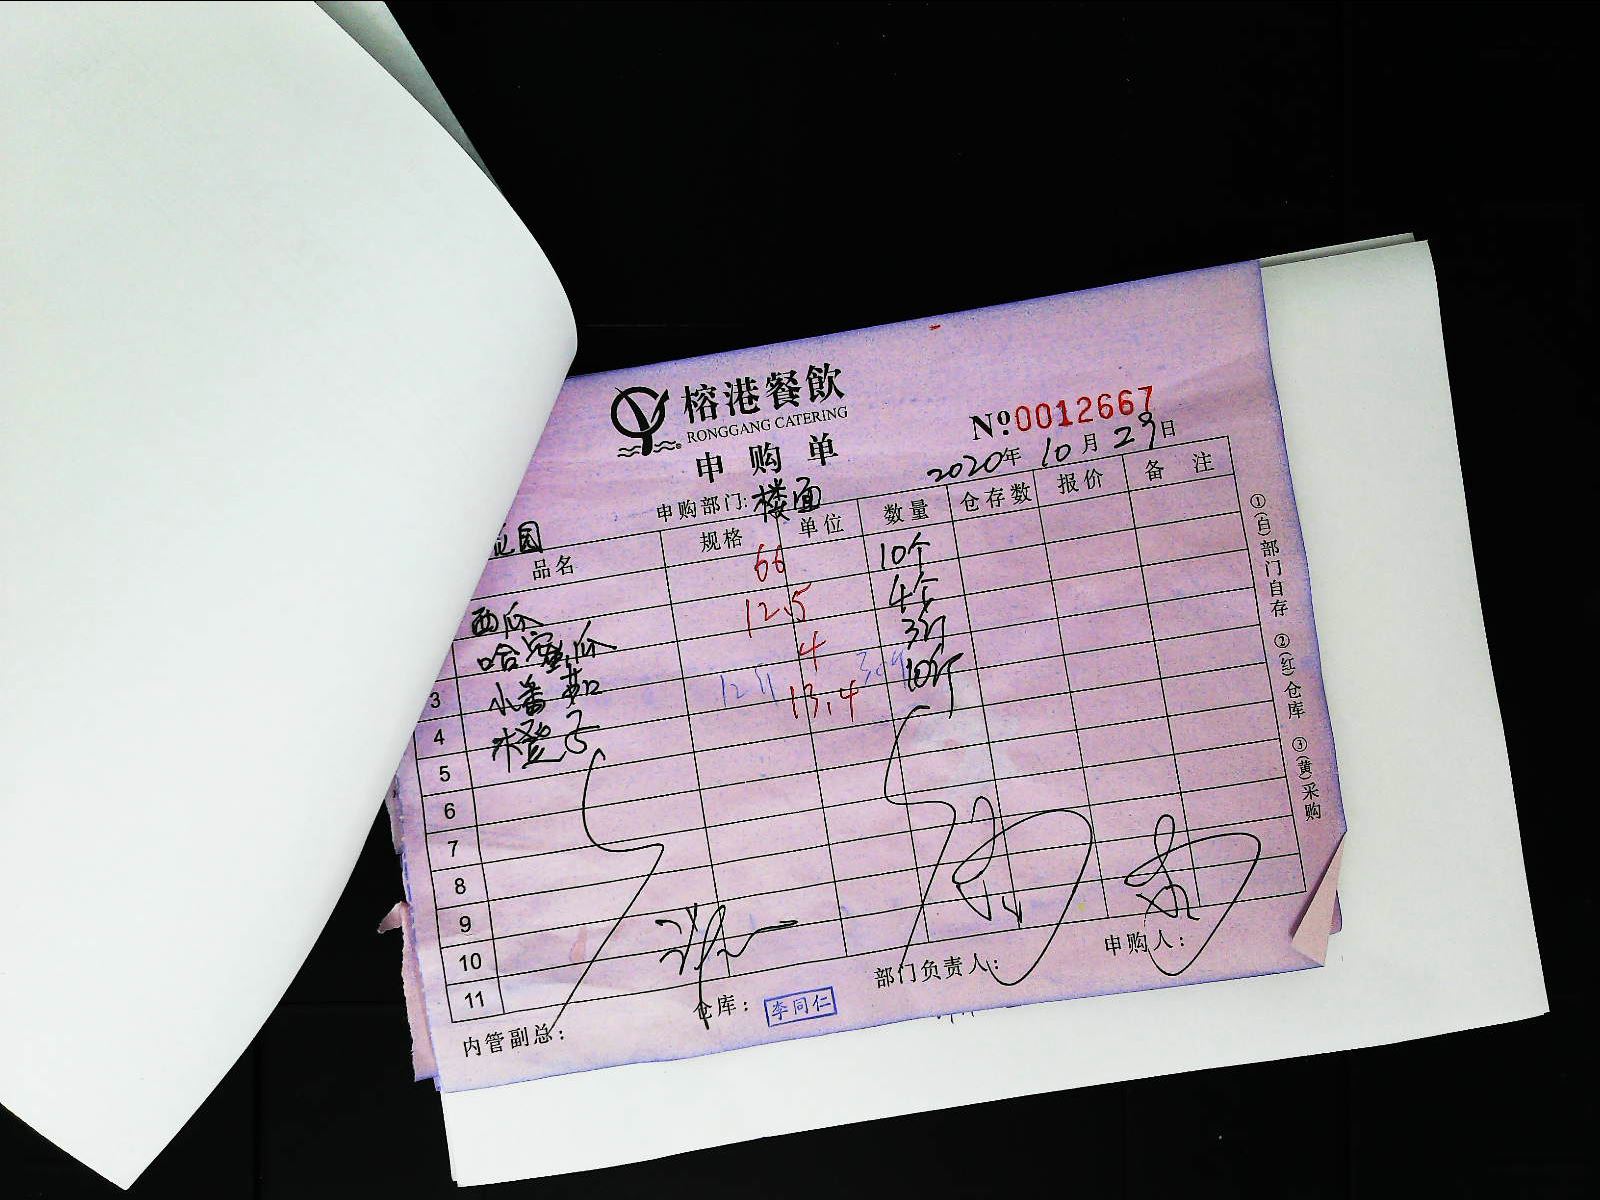 榕港餐飲
RONGGANG CATERING
申购单
№ 0012667
2020年 10月 29日
申购部门: 楼面
园
品名 规格 单位 数量 仓存数 报价 备注
西瓜 66 10个
哈密瓜 12.5 4个
3 小番茄 4 3斤
4 橙子 13.4 10斤
5
6
7
8
9
10
11
内管副总: 仓库: 李同仁 部门负责人: 申购人:
①(白)部门自存 ②(红)仓库 ③(黄)采购